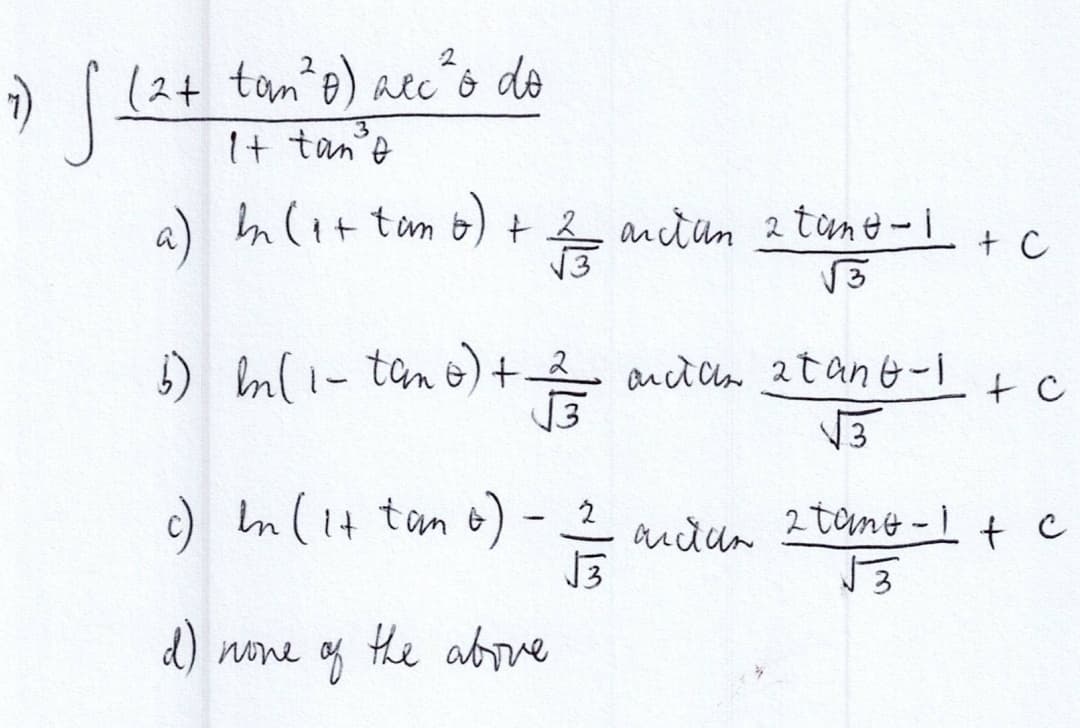 7) ∫ (2+ tan²θ) sec²θ dθ / 1+ tan³θ
a) ln(1+ tan θ) + 2/√3 arctan 2 tanθ-1/√3 + C
b) ln(1- tan θ) + 2/√3 arctan 2tanθ-1/√3 + C
c) ln(1+ tan θ) - 2/√3 arctan 2tanθ-1/√3 + C
d) none of the above